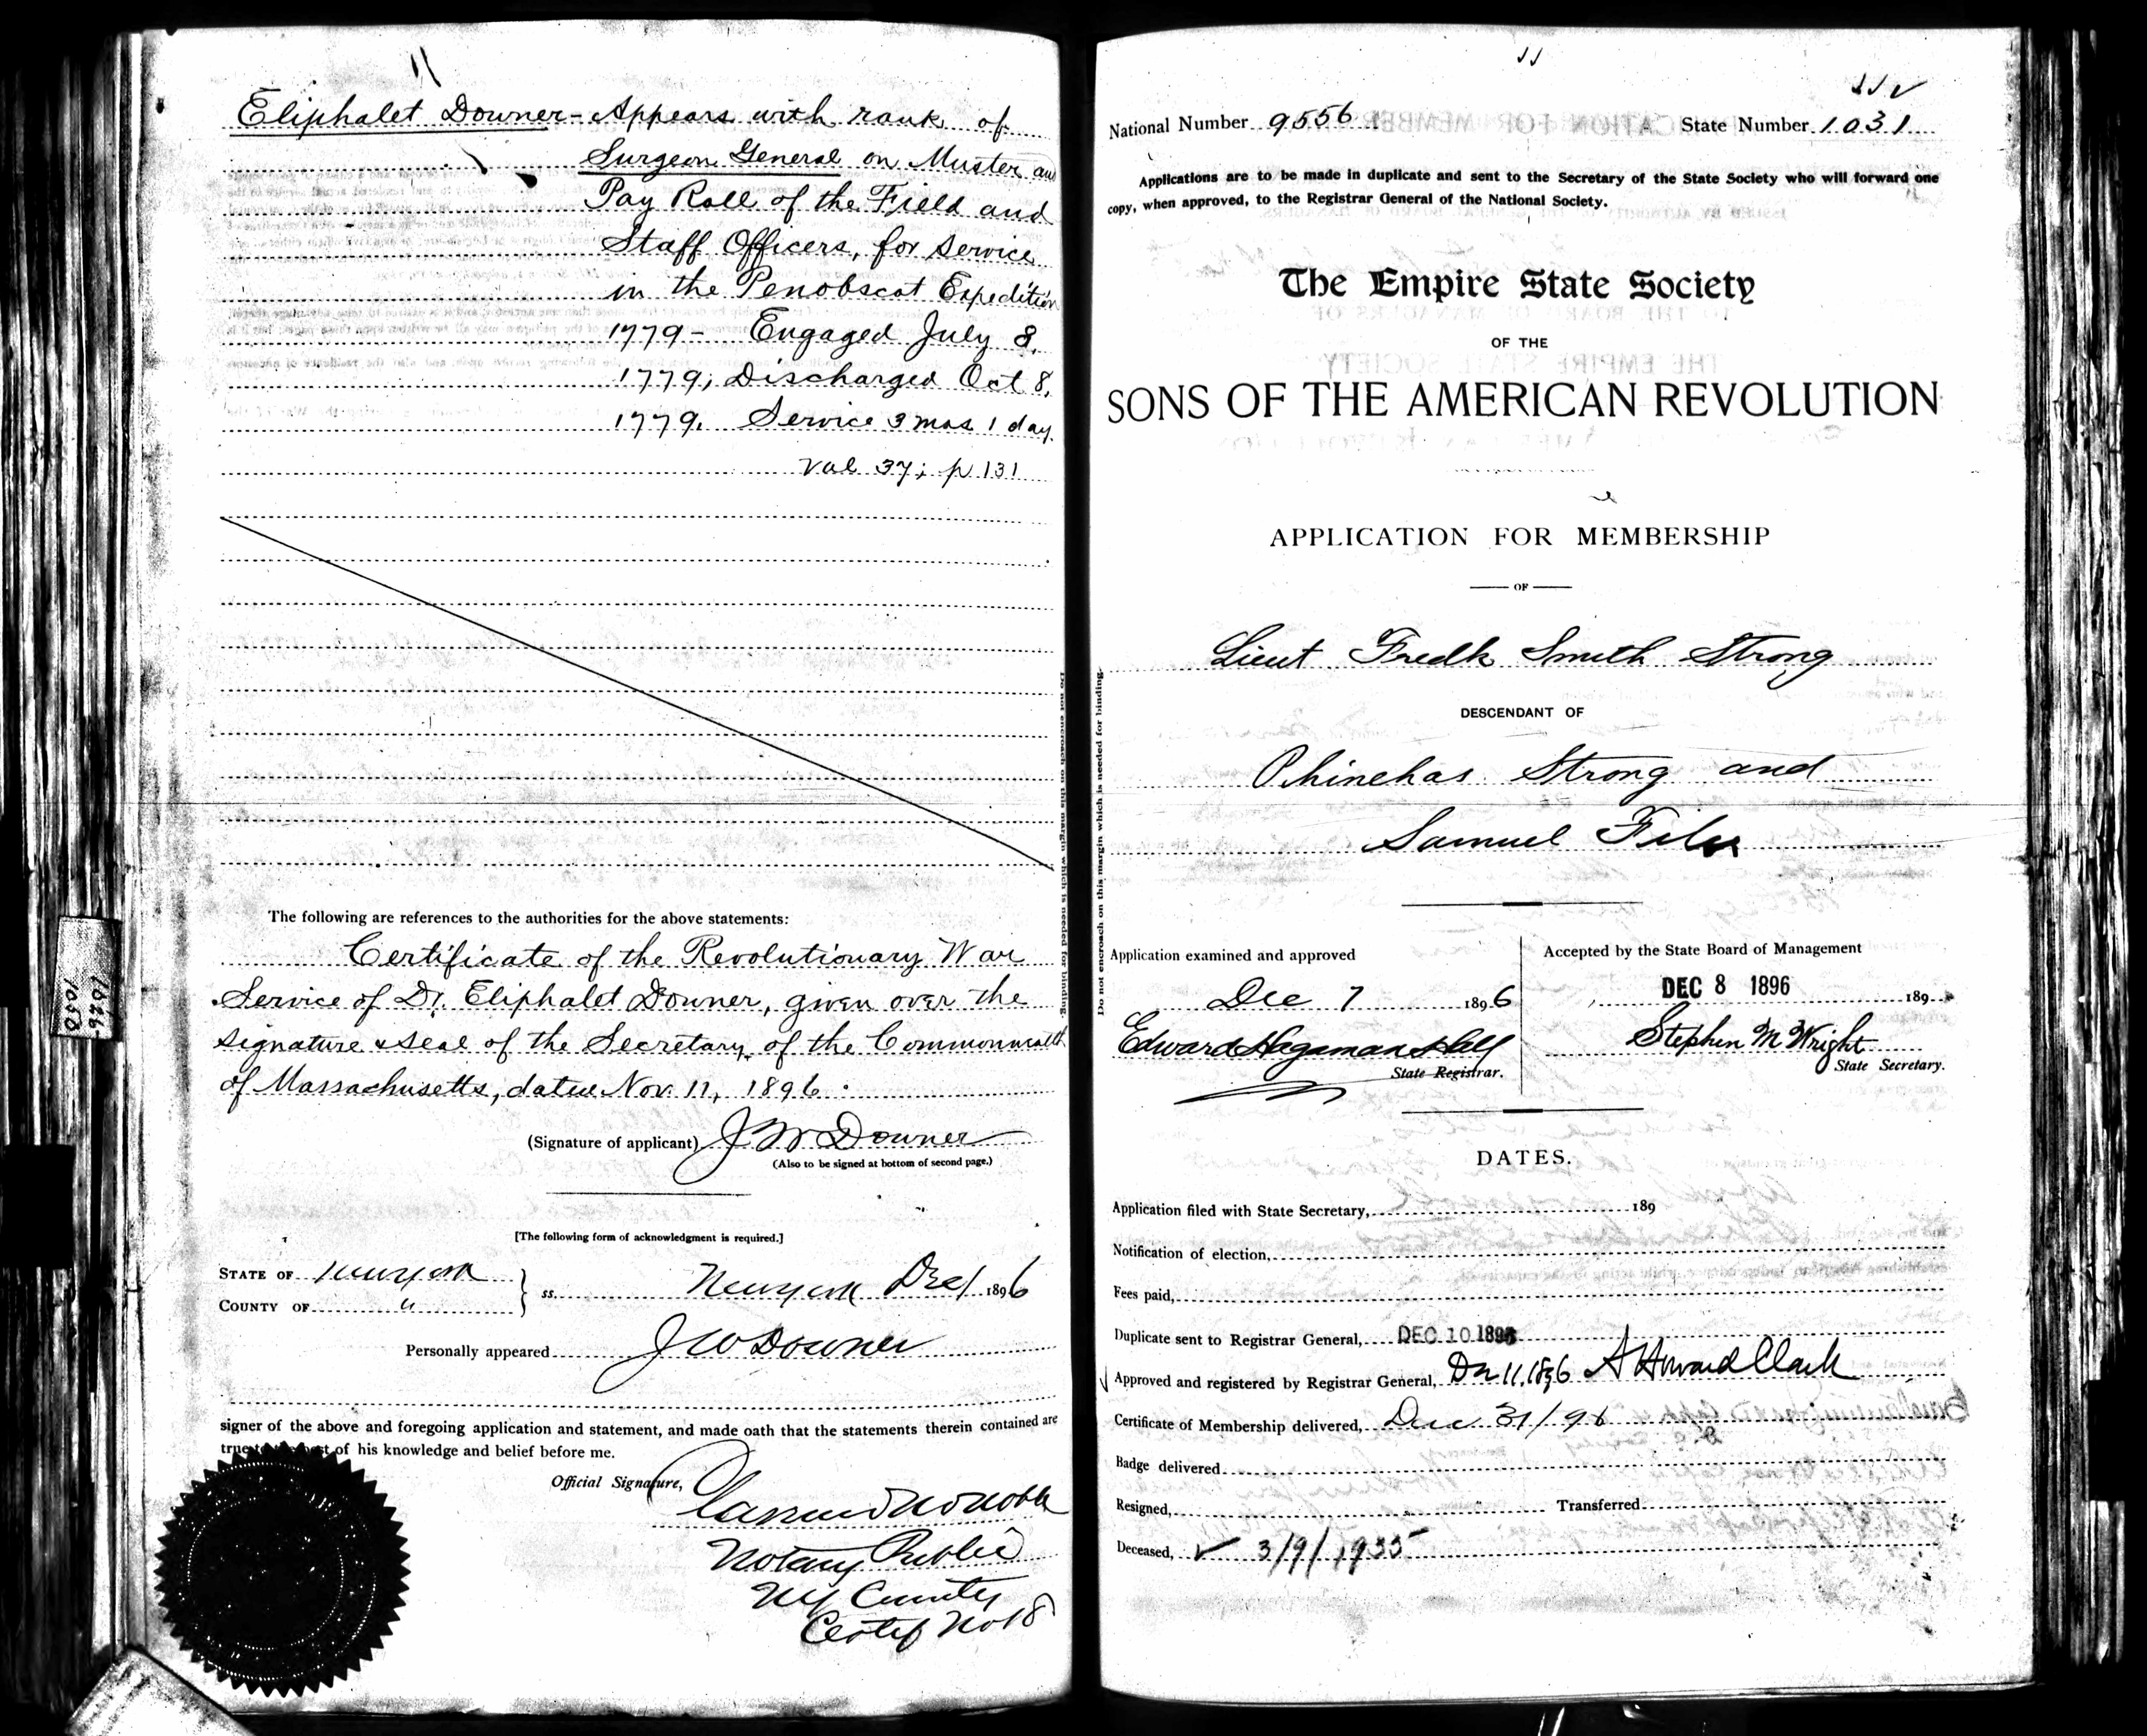 Eliphalet Downer - Appears with rank of
Surgeon General on Muster and
Pay Roll of the Field and
Staff Officers, for service
in the Penobscot Expedition
1779 - Engaged July 8,
1779; Discharged Oct 8,
1779. Service 3 mos 1 day.
Vol 37; p 131
The following are references to the authorities for the above statements:
Certificate of the Revolutionary War
Service of Dr. Eliphalet Downer, given over the
signature & seal of the Secretary of the Commonwealth
of Massachusetts, dated Nov. 11, 1896.
(Signature of applicant) J W Downer
(Also to be signed at bottom of second page.)
[The following form of acknowledgment is required.]
STATE OF New York
COUNTY OF " } ss. New York Dec 1 1896
Personally appeared J W Downer
signer of the above and foregoing application and statement, and made oath that the statements therein contained are
true to the best of his knowledge and belief before me.
Official Signature,
Notary Public
NY County
Certif No 18
Do not encroach on this margin which is needed for binding.
1026-
1050
11
11 ✓
National Number 9556 State Number 1031
Applications are to be made in duplicate and sent to the Secretary of the State Society who will forward one
copy, when approved, to the Registrar General of the National Society.
The Empire State Society
OF THE
SONS OF THE AMERICAN REVOLUTION
APPLICATION FOR MEMBERSHIP
OF
Lieut Fredk Smith Strong
DESCENDANT OF
Phinehas Strong and
Samuel Filer
Application examined and approved
Dec 7 1896
Edward Hagaman Hall
State Registrar.
Accepted by the State Board of Management
DEC 8 1896 189
Stephen M Wright
State Secretary.
DATES.
Application filed with State Secretary, 189
Notification of election,
Fees paid,
Duplicate sent to Registrar General, DEC 10 1896
Approved and registered by Registrar General, Dec 11, 1896 A Howard Clark
Certificate of Membership delivered, Dec 31/96
Badge delivered
Resigned, Transferred
Deceased, ✓ 3/9/1935
Do not encroach on this margin which is needed for binding.